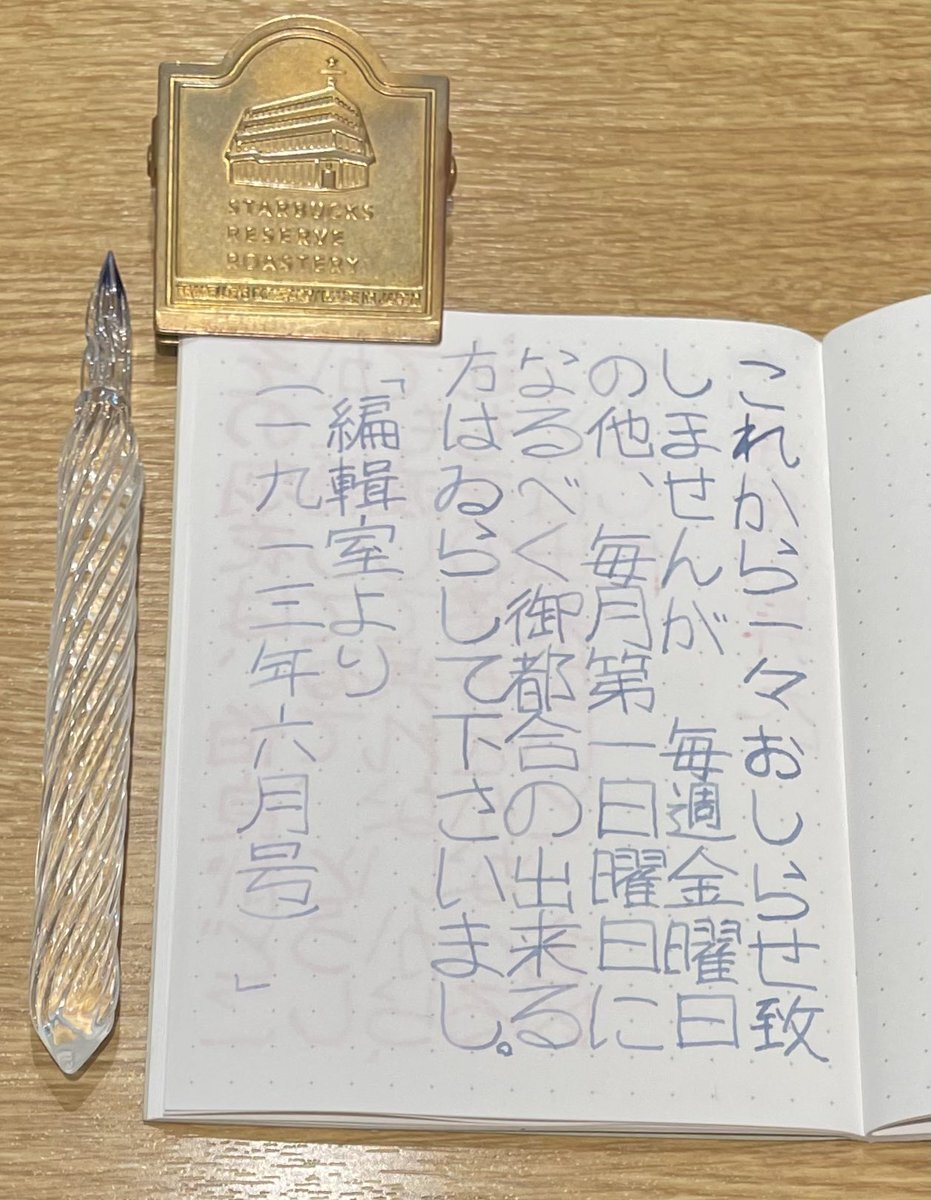 STARBUCKS
RESERVE
ROASTERY
これから一々おしらせ致
しませんが　毎週金曜日
の他、毎月第一日曜日に
なるべく御都合の出来る
方はゐらして下さいまし。
「編輯室より
（一九一三年六月号）」